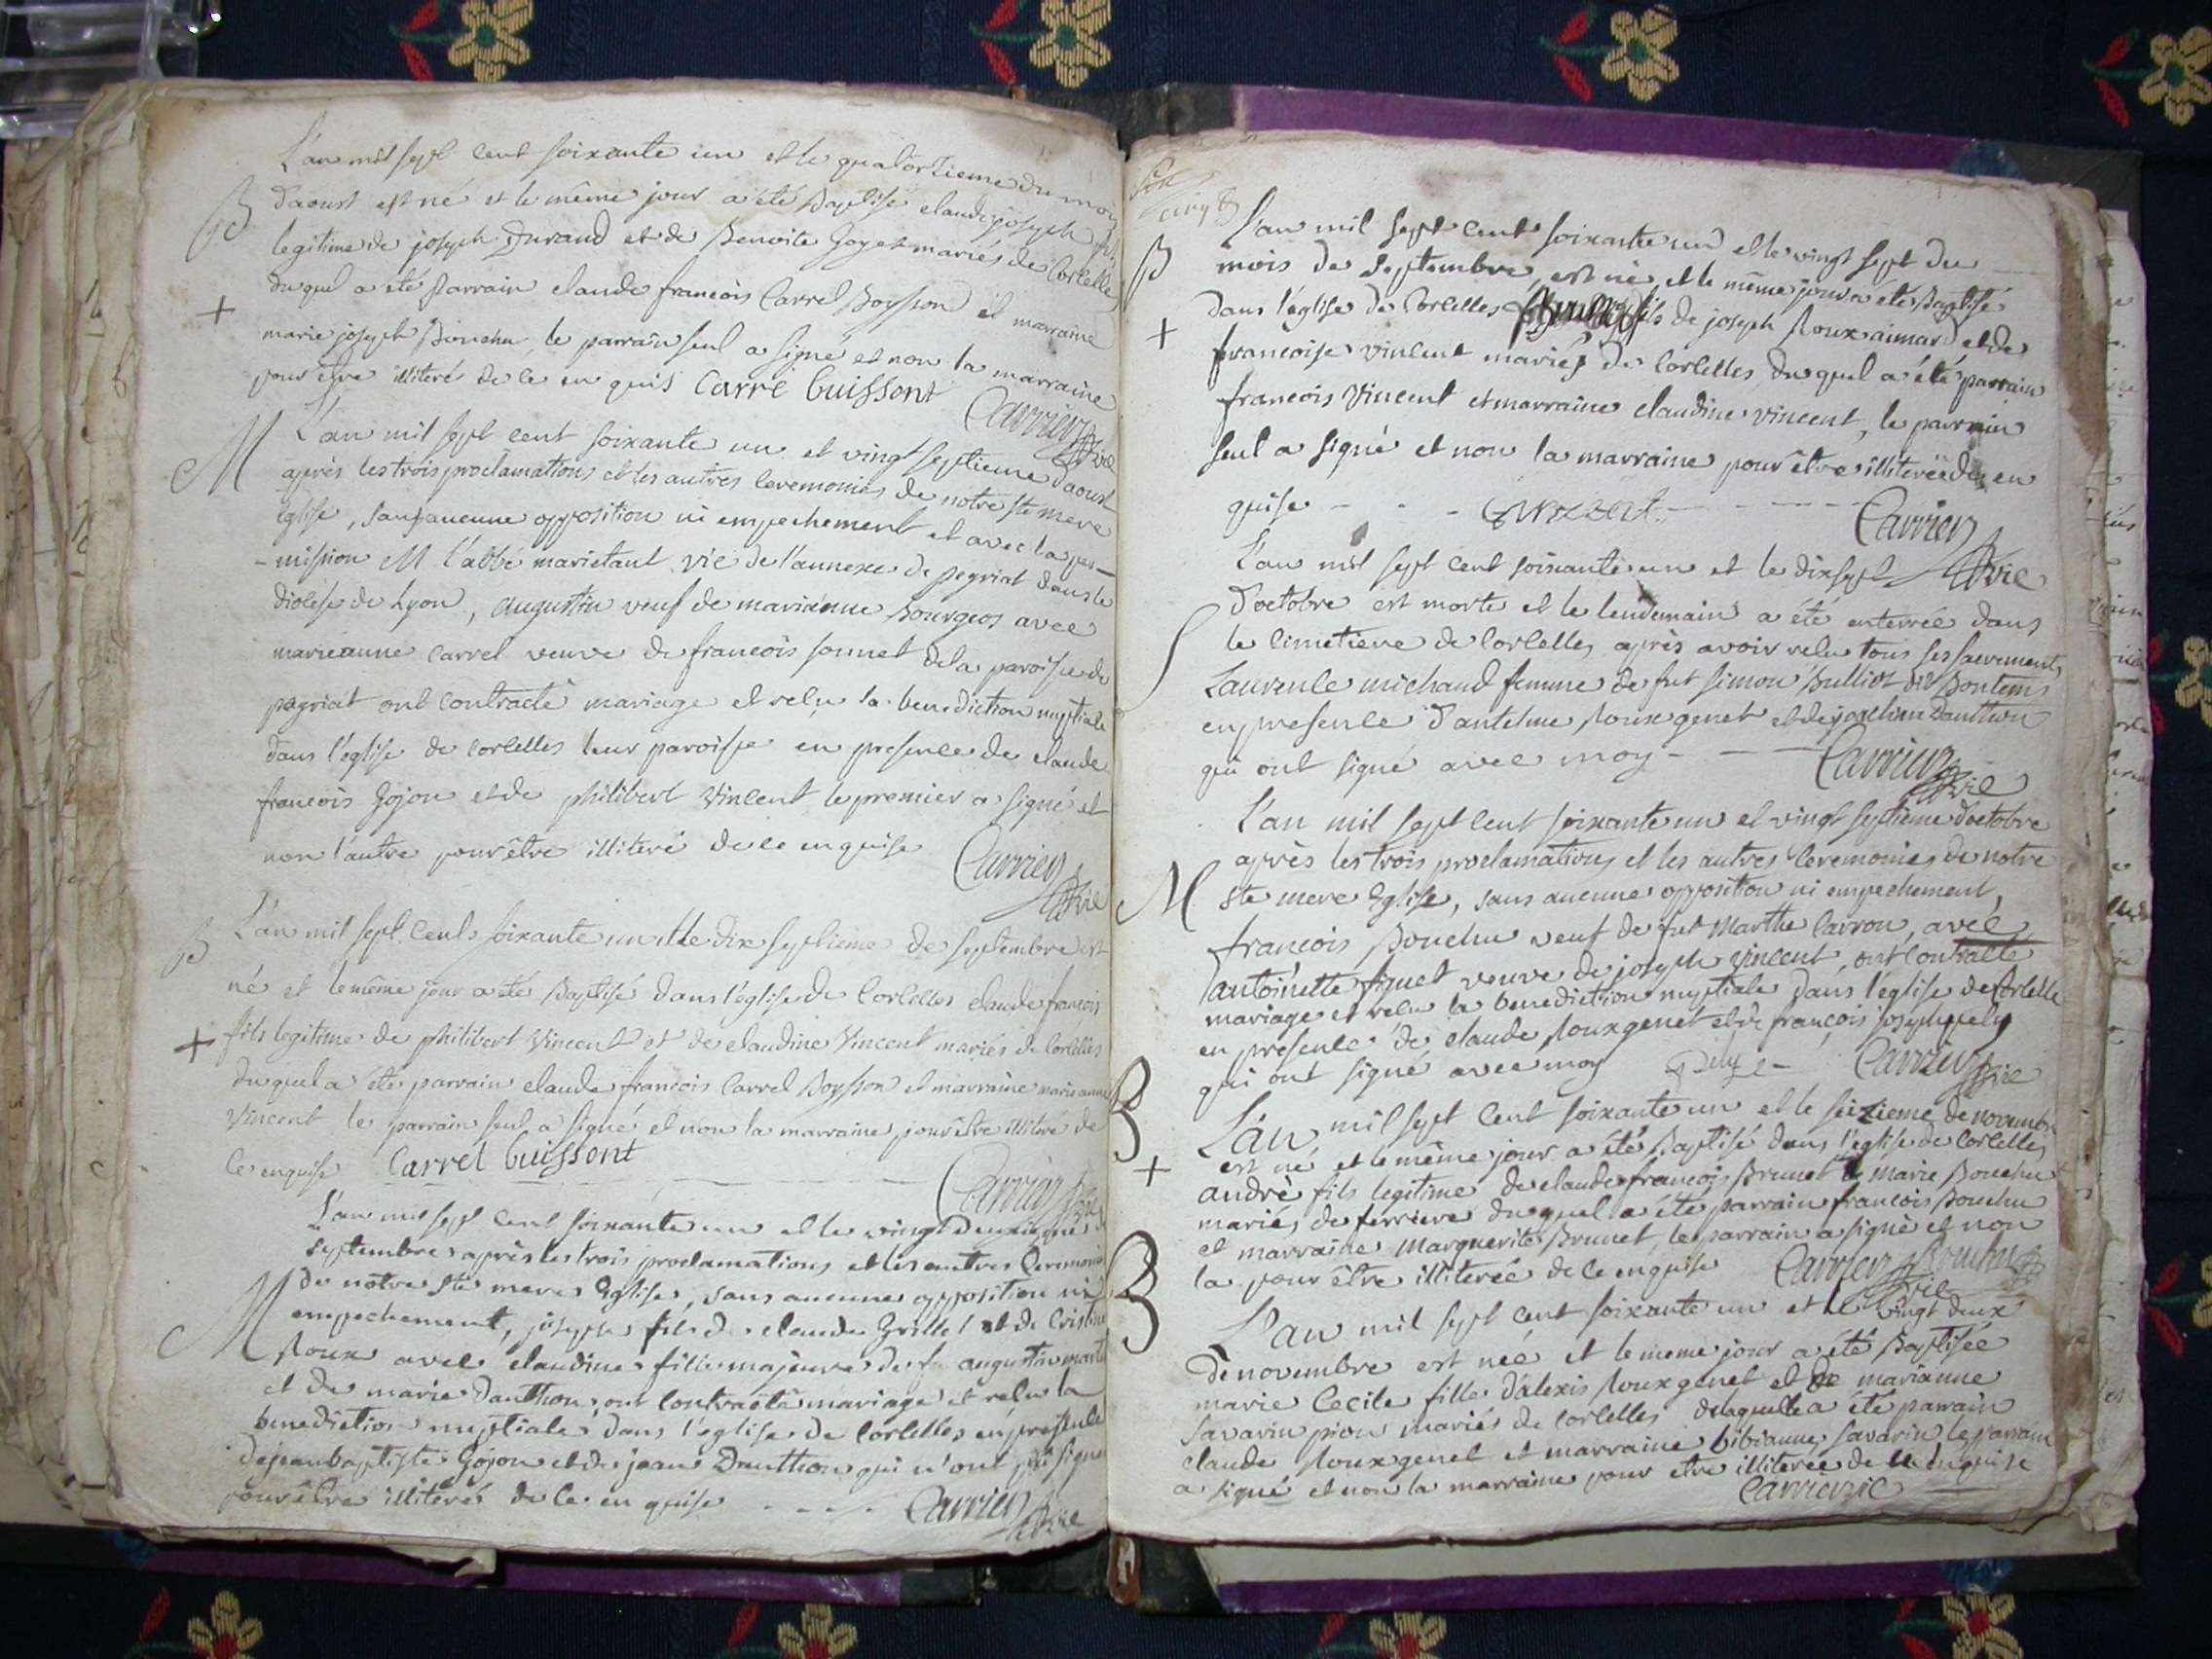 L'an mil sept cent soixante un et le quatorzieme du moy
B
Daoust est né et le même jour a été Baptisé claude joseph fils
legitime de joseph Durand et de Benoite Goyet mariés de Corcelle
+
duquel a été parrain claude francois Carrel Boysson et marraine
marie joseph Bouchu, le parrain seul a signé et non la marraine
pour être illiteré de ce en quis Carré buissont
Carrier Vic
M
L'an mil sept cent soixante un et vingt septieme daoust
après les trois proclamations et les autres ceremonies de notre ste mere
église, sans aucune opposition ni empechement et avec la per-
-mission M l'abbé marietant vic de l'annexe de pegriat dans le
diocèse de Lyon, augustin veuf de marianne Bourgeos avec
marieanne carrel veuve de francois sonnet dela paroisse de
pegriat ont contracté mariage et recu la benediction nuptiale
dans l'église de corcelles leur paroisse en presence de claude
francois Gojon et de philibert Vincent le premier a signé et
non l'autre pour être illiteré de ce enquise
Carrier Vic
B
L'an mil sept cent soixante un et le dix septieme de septembre est
né et le même jour a été Baptisé dans l'église de Corcelles claude francois
+
fils legitime de philibert Vincent et de claudine Vincent mariés de Corcelles
duquel a été parrain claude francois Carrel Boysson et marraine marieanne
Vincent le parrain seul a signé et non la marraine pour être illiteré de
ce enquise Carrel buissont
Carrier Vic
L'an mil sept cent soixante un et le vingt deuxieme
septembre après les trois proclamations et les autres Ceremonies
M
de notre ste mere Eglise, sans aucune opposition ni
empechement, joseph fils de claude Grillet et de Cristine
Roux avec claudine fille majeure de fu augustin
et de marie Dauthon, ont contracté mariage et recu la
benediction nuptiale dans l'église de Corcelles en presence
de jean baptiste Gojon et de jean Dauthon qui n'ont signé
pour être illiteré de ce en quise - - - -
Carrier Vic
L'an mil sept cent soixante un et le vingt sept du
B
mois de Septembre, est né et le même jour a été Baptisé
dans l'église de Corcelles fils de joseph Roux aimard et de
+
francoise vincent mariés de Corcelles, duquel a été parrain
francois Vincent et marraine claudine vincent, le parrain
seul a signé et non la marraine pour être illiterée de en
quise - - - vincent - - - -
Carrier Vic
L'an mil sept cent soixante un et le dix sept
d'octobre est morte et le lendemain a été enterrée dans
S
le cimetiere de Corcelles après avoir recu tous ses sacrements
Laurence michaud femme de fut simon Bulliot dit Bontems
en presence d'antelme Roux genet et de joachim Dauthon
qui ont signé avec moy - - -
Carrier Vic
L'an mil sept cent soixante un et vingt septieme d'octobre
après les trois proclamations et les autres Ceremonies de notre
M
ste mere Eglise, sans aucune opposition ni empechement,
francois Bouchu veuf de fut Marthe Carron, avec
antoinette figuet veuve de joseph vincent, ont contracté
mariage et recu la benediction nuptiale dans l'église de Corcelle
en presence de claude Roux genet et de françois joseph pely
qui ont signé avec moy Pely
Carrier Vic
B
L'an mil sept cent soixante un et le seizieme de novembre
est né et le même jour a été Baptisé dans l'église de Corcelles
+
andré fils legitime de claude françois Brunet de marie Bouchu
mariés de ferriere duquel a été parrain francois Bouchu
et marraine Marguerite Brunet, le parrain a signé et non
la pour être illiterée de ce enquise Carrier Vic Bouchu
B
L'an mil sept cent soixante un et le vingt deux
de novembre est née et le meme jour a été Baptisée
marie Cecile fille d'alexis Roux genet et de marianne
Savarin pion mariés de Corcelles, de laquelle a été parrain
claude Roux genet et marraine bibianne savarin le parrain
a signé et non la marraine pour etre illiterée de ce enquise
Carrier vic